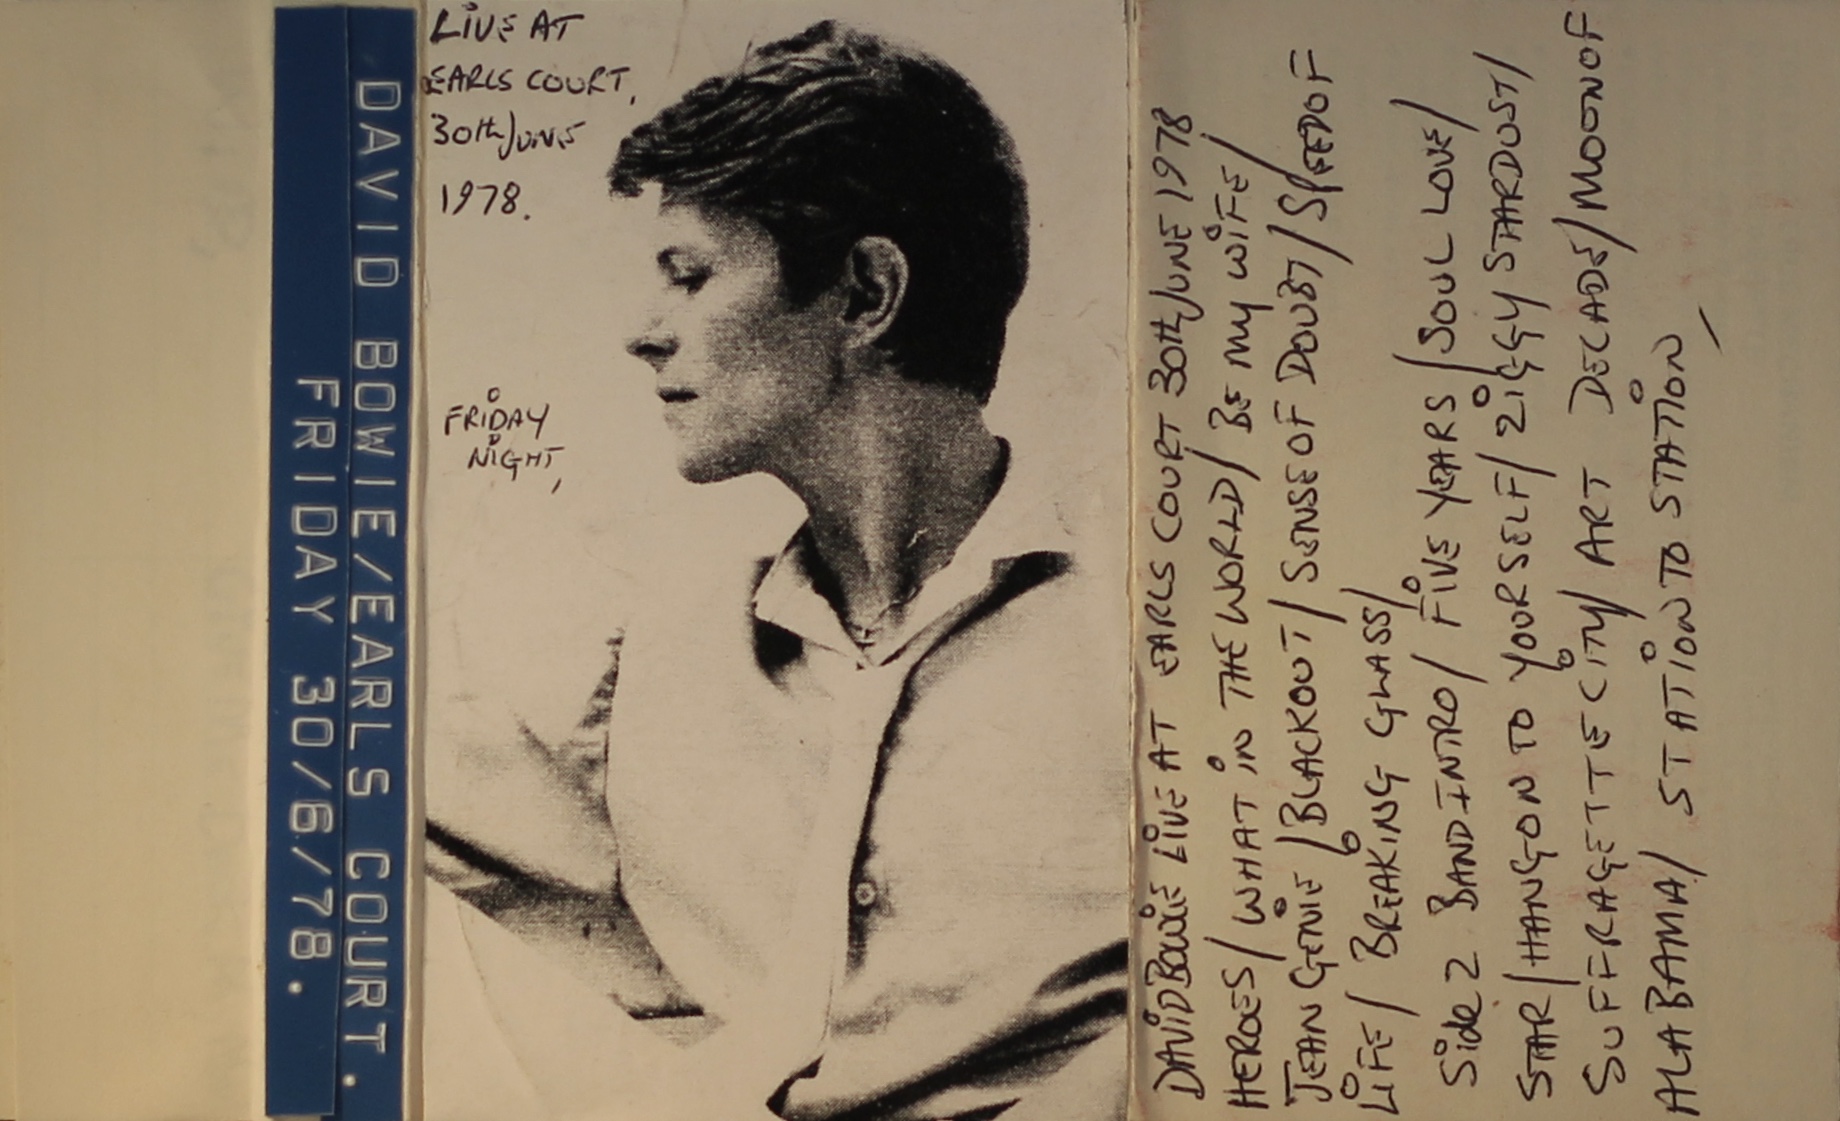 DAVID BOWIE/EARLS COURT.
FRIDAY 30/6/78.
LIVE AT
EARLS COURT,
30th JUNE
1978.
FRIDAY
NIGHT,
DAVID BOWIE LIVE AT EARLS COURT 30th JUNE 1978
HEROES/WHAT IN THE WORLD/BE MY WIFE/
JEAN GENIE/BLACKOUT/SENSE OF DOUBT/SPEED OF
LIFE/BREAKING GLASS/
Side 2 BAND INTRO/FIVE YEARS/SOUL LOVE/
STAR/HANG ON TO YOURSELF/ZIGGY STARDUST/
SUFFRAGETTE CITY/ART DECADE/MOON OF
ALABAMA/STATION TO STATION/